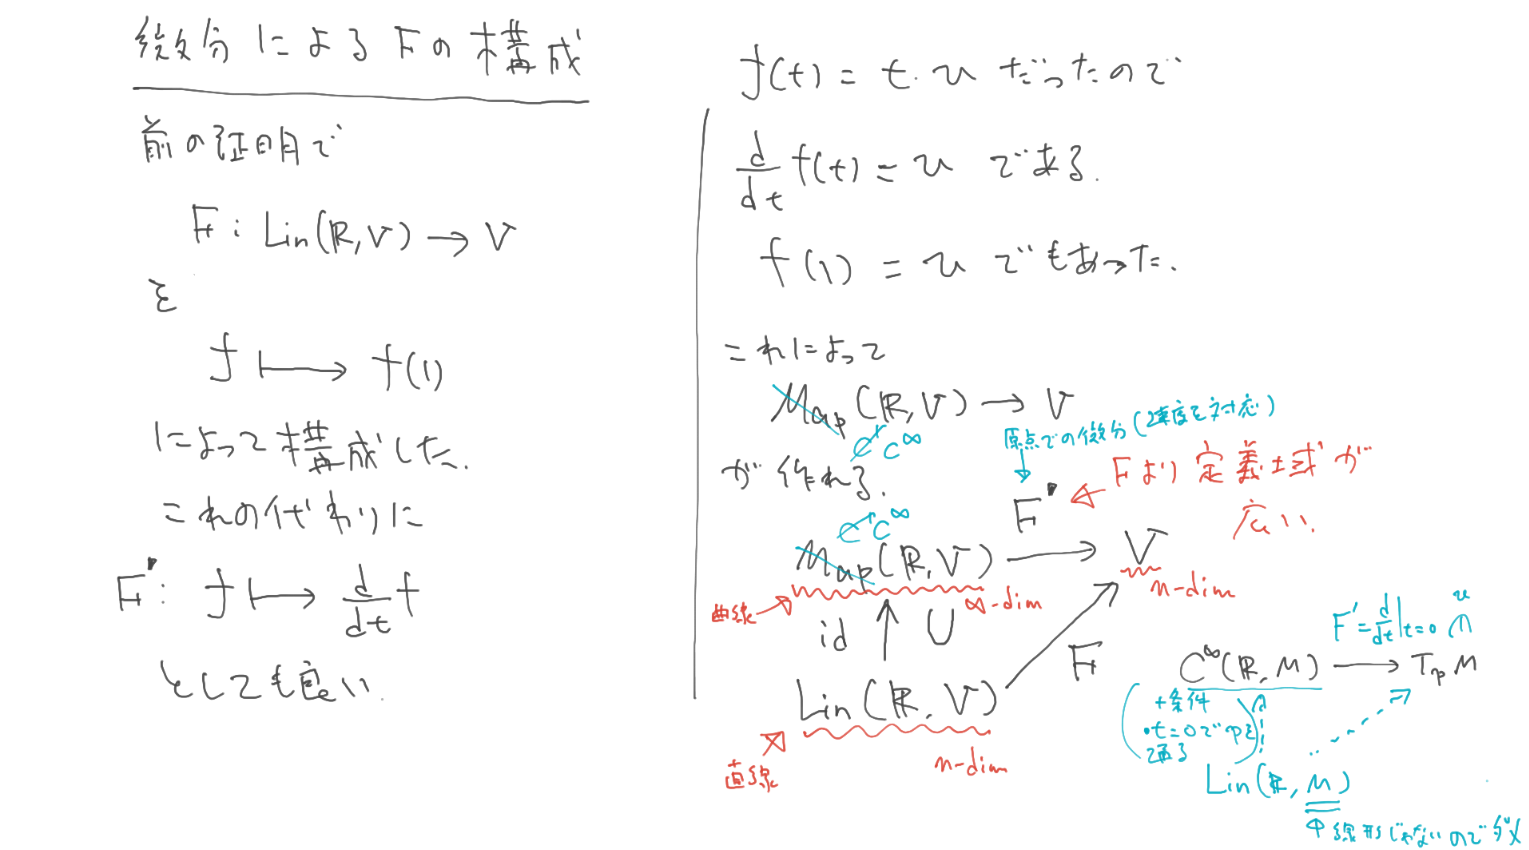 微分による Fの構成
前の証明で
F : Lin(ℝ, V) → V
を
f ↦ f(1)
によって構成した.
これの代わりに
F' : f ↦ d/dt f
としても良い.
f(t) = t・v だったので
d/dt f(t) = v である.
f(1) = v でもあった.
これによって
Map(ℝ, V) → V
C^r C^∞
が作れる.
原点での微分(速度を対応)
↓
F' ← Fより定義域が
広い.
C^r C^∞
Map(ℝ, V) → V
曲線 → ∞-dim
n-dim
id ↑ U
F
Lin(ℝ, V)
直線
n-dim
F' = d/dt|t=0
C^∞(ℝ, M) → TpM
+条件
・t=0でpを
通る
Lin(ℝ, M)
↑線形じゃないのでダメ